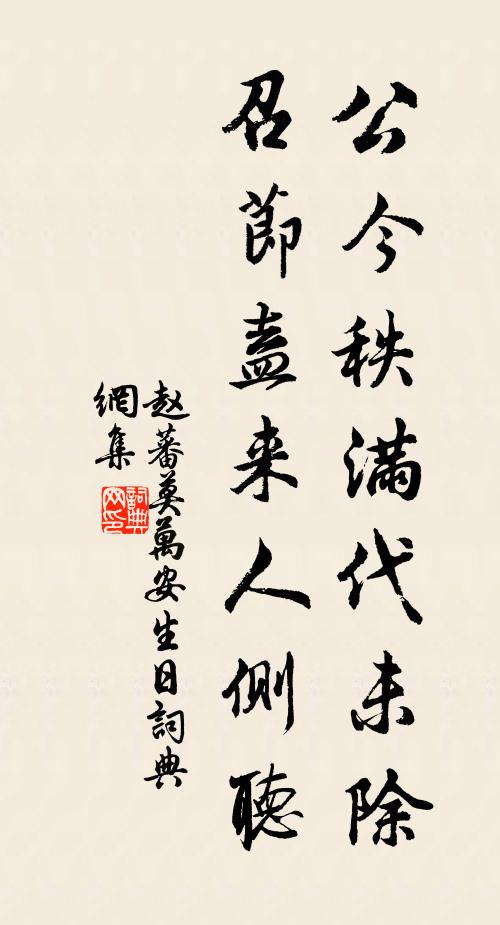 公今秩满代未除
召節盍来人側聽
赵蕃莫萬安生日詞典
網集
詞典
网印